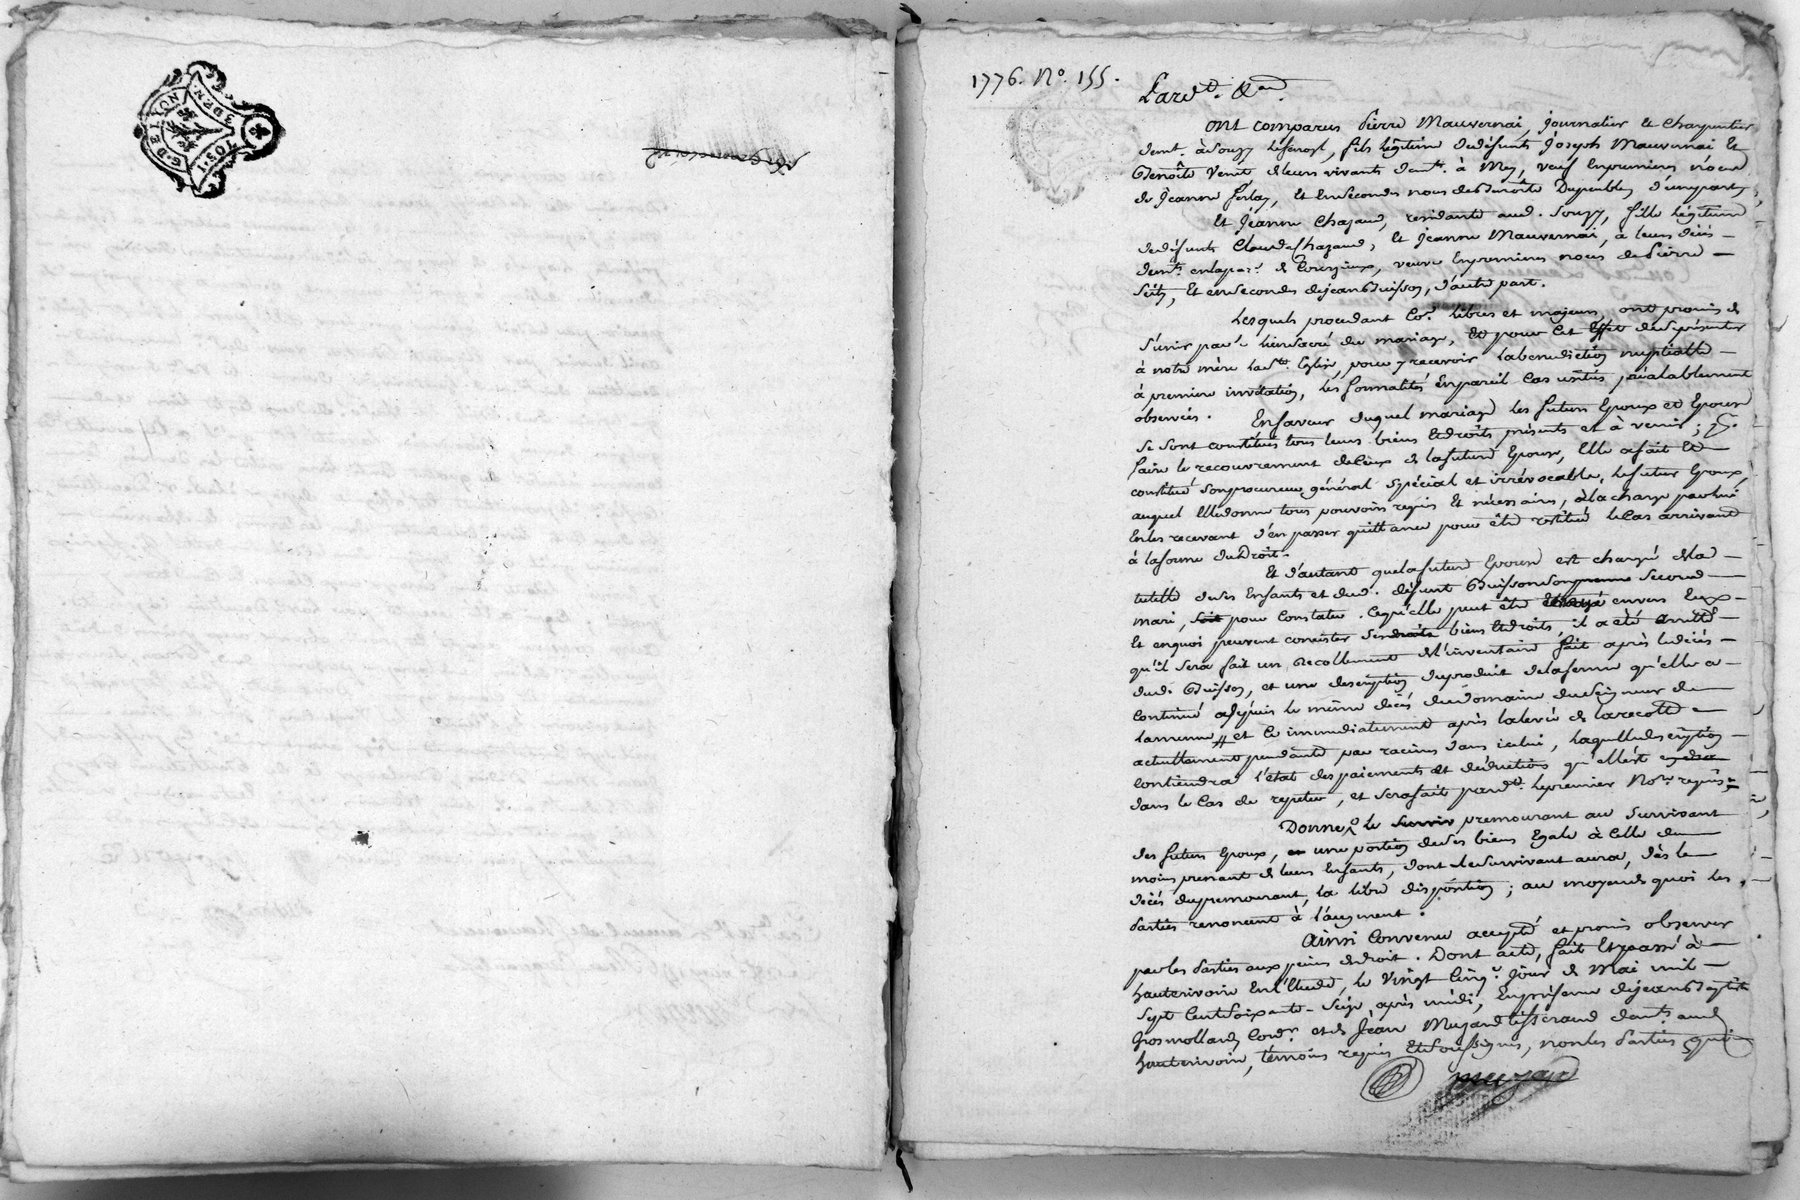 G. DE LYON
3 DEN.
1 SOL
1776. No. 155.
Pard.t &a.
Ont comparus Pierre Mauvernai, journalier et charpentier
demt. à Souzy l'argent, fils légitime de défunts Joseph Mauvernai et
Benoîte Venet de leurs vivants demts. à Mey, veuf en premieres nôces
de Jeanne Ferlay, et en secondes noces de Benoîte Dupeubley, d'une part,
Et Jeanne Chazaud, residante aud. Souzy, fille légitime
de défunts Claude Chazaud, et Jeanne Mauvernai, à leurs décès
demts. en la par.e de Courzieux, veuve en premieres noces de Pierre
et en secondes de Jean Buisson, d'autre part.
Lesquels procedant co.e libres et majeurs, ont promis de
s'unir par le lien sacré du mariage, et pour cet effet de se présenter
à notre mère la ste. Eglise, pour y recevoir la bénédiction nuptialle
à premiere invitation, les formalités en pareil cas usités préalablement
observées. En faveur duquel mariage les futurs Epoux et Epouse
se sont constitués tous leurs biens et droits présents et à venir; pr.
faire le recouvrement de ceux de la future Epouse, elle a fait et
constitué son procureur général spécial et irrévocable, le futur Epoux,
auquel elle donne tous pouvoirs requis et nécessaires, à la charge par lui
en les recevant d'en passer quittance pour être restitué le cas arrivant
à la forme du Droit.
Et d'autant que la future Epouse est chargée de la
tutelle de ses Enfants et dud. défunt Buisson son second
mari, pour constater ce qu'elle peut être envers eux
et en quoi peuvent consister ses biens et droits, il a été arrêté
qu'il sera fait un recollement de l'inventaire fait après le décès
dud. Buisson, et une description du produit de la ferme qu'elle a
continué depuis le même décès du domaine du Seigneur de
et ce immediatement après la levée de la recolte
actuellement pendante par racines dans icelui, laquelle description
contiendra l'état des paiements et déductions qu'elle est
dans le cas de repeter, et sera fait pard.t le premier No.re requis
Donne le premourant au survivant
des futurs Epoux, une portion de ses biens Egale à celle du
moins prenant de leurs Enfants, dont le survivant aura, dès le
décès du premourant, la libre disposition; au moyen de quoi les
Parties renoncent à l'augment.
Ainsi convenu accepté et promis observer
par les Parties aux peines de droit. Dont acte, fait et passé à
hauterivoire en l'Etude, le vingt cinq.e jour de Mai mil
sept cent soixante-seize après midi, En présence de Jean Baptiste
Grosmollard, cord.r et de Jean Muzard tisserand demts. aud.
hauterivoire, témoins requis et soussignés, non les Parties qui
muzard